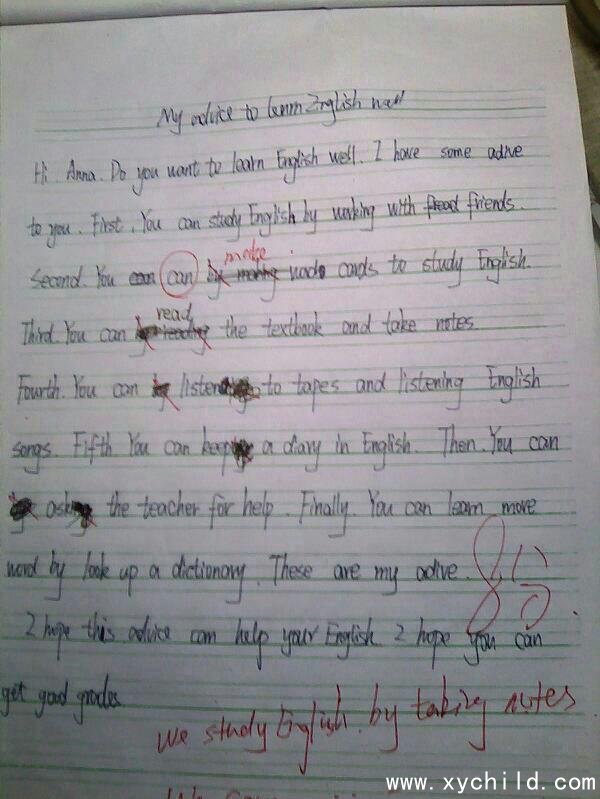 My advice to learn English well
Hi. Anna. Do you want to learn English well. I have some adive
to you. First, You can study English by working with friends.
make
Second. You can can by making wodo cards to study English.
read
Third. You can by reading the textbook and take notes
Fourth. You can listen to tapes and listening English
songs. Fifth You can keep a diary in English. Then. You can
ask the teacher for help. Finally. You can learn more
word by look up a dictionary. These are my adive.
85
I hope this advice can help your English. I hope you can
get good grades
We study English by taking notes
We
www.xychild.com